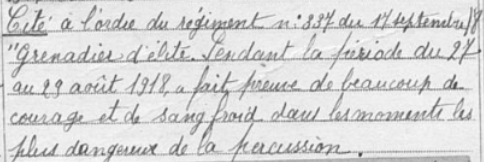 Cité à l'ordre du régiment n°: 337 du 17 septembre 18
"Grenadier d'élite. Pendant la période du 27
au 29 août 1918, a fait preuve de beaucoup de
courage et de sang froid dans les moments les
plus dangereux de la percussion.